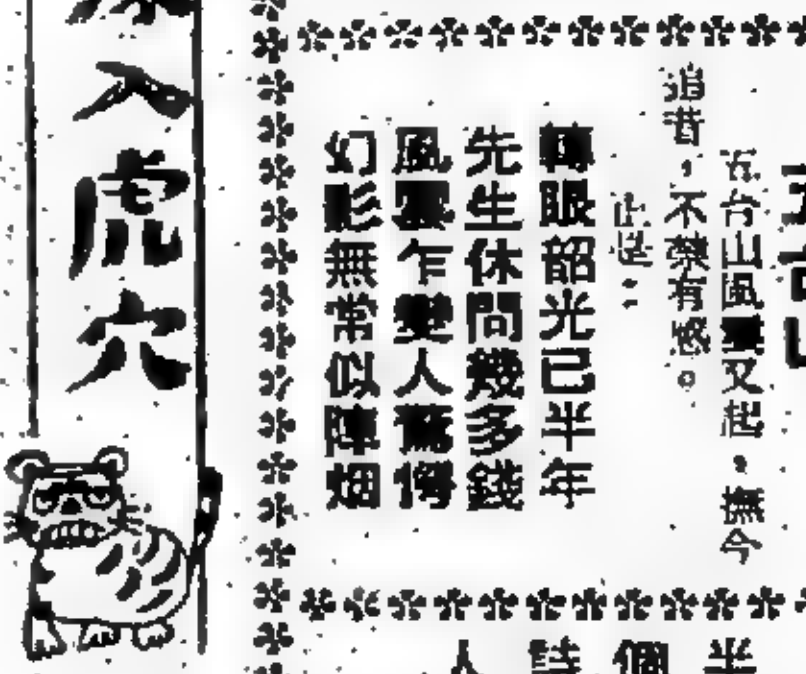 五台山
五台山風雲又起，撫今
追昔，不禁有感。
正是：
轉眼韶光已半年
先生休問幾多錢
風雲乍變人驚愕
幻影無常似陣烟
半個詩人
入虎穴